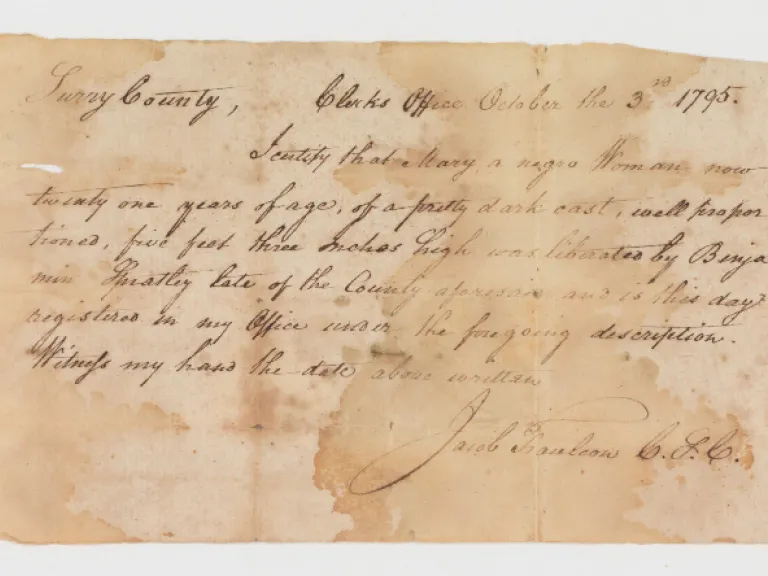 Surry County, Clerks Office October the 3rd 1795.
I certify that Mary a negro Woman now
twenty one years of age, of a pretty dark cast, well propor
tioned, five feet three inches high was liberated by Benja
min Spratley late of the County aforesaid and is this day
registered in my Office under the foregoing description.
Witness my hand the date above written
Jacob Faulcon C.S.C.